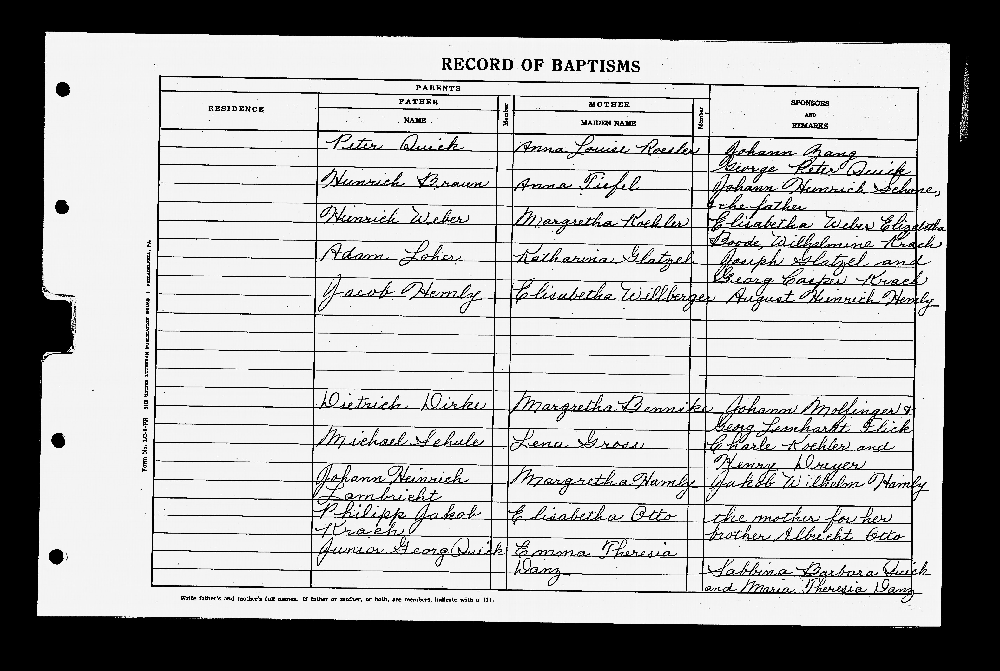 RECORD OF BAPTISMS
PARENTS
RESIDENCE
FATHER
Member
MOTHER
Member
SPONSORS
AND
REMARKS
NAME
MAIDEN NAME
Peter Quick Anna Louise Roesler Johann Zang
George Peter Quick
Heinrich Braun Anna Tiefel Johann Heinrich
the father
Heinrich Weber Margretha Koehler Elisabetha Weber Elizabetha
Boode, Wilhelmine Krach
Adam Loher Katharina Glatzel Joseph Glatzel and
Georg Casper Krach
Jacob Hemly Elisabetha Willberger August Heinrich Hemly
Dietrich Dirks Margretha Bennike Johann Molfinger &
Georg Leonhardt Flick
Michael Lena Gross Charle Koehler and
Henry Dreyer
Johann Heinrich Margretha Hamly Jakob Wilhelm Hamly
Lambricht
Philipp Jakob Elisabetha Otto the mother for her
Krach brother Albrecht Otto
Junior Georg Quick Emma Theresia
Danz Sabbina Barbara Quick
and Maria Theresia Danz
Write father's and mother's full names. If father or mother, or both, are members, indicate with a (1).